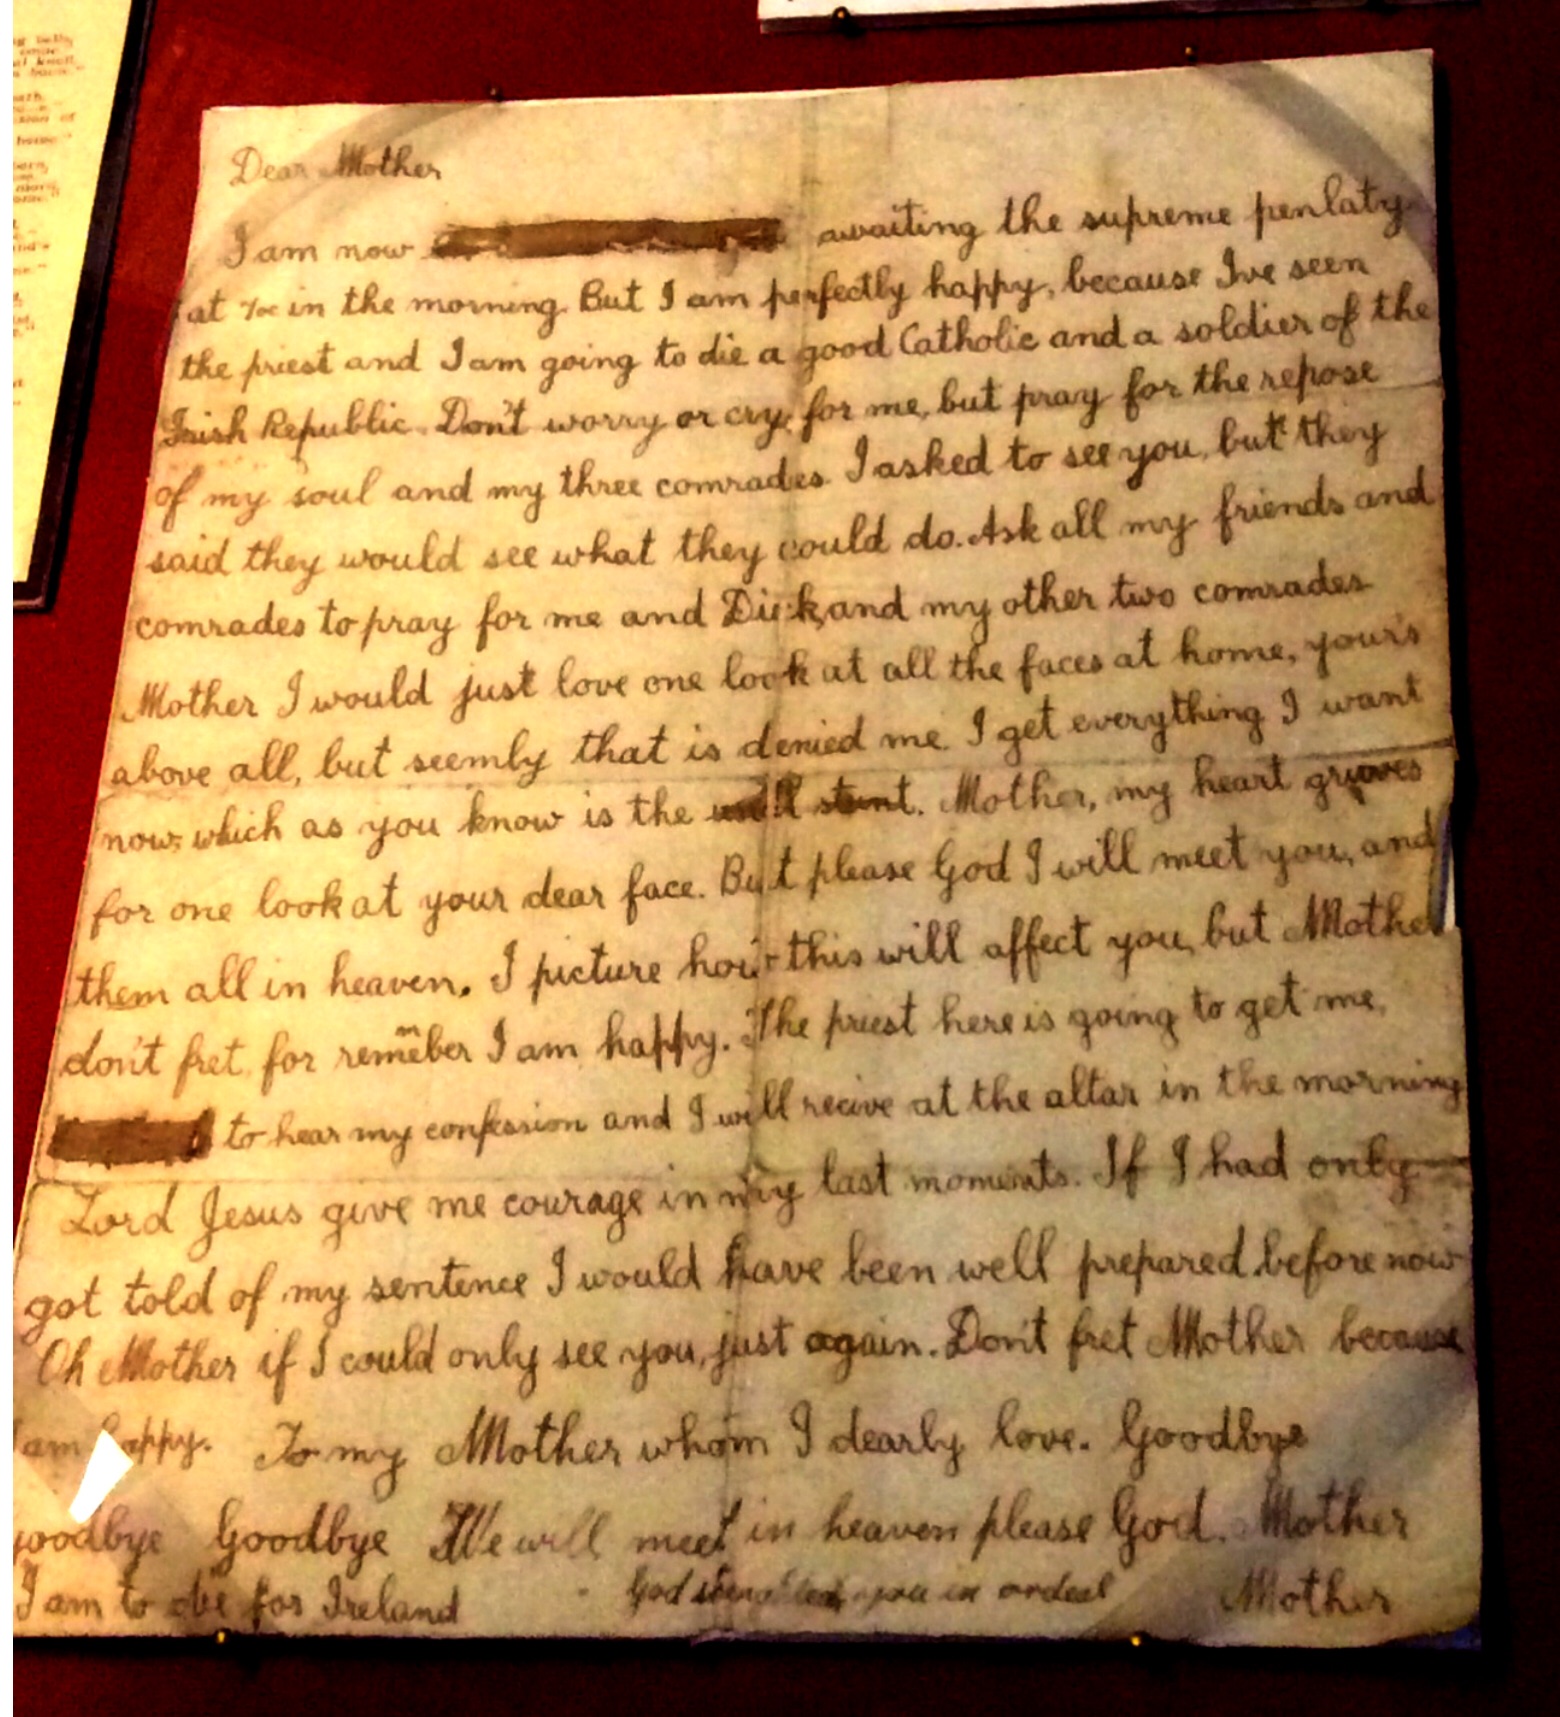 Dear Mother
I am now awaiting the supreme penlaty
at 7oc in the morning. But I am perfectly happy, because Ive seen
the priest and I am going to die a good Catholic and a soldier of the
Irish Republic. Don't worry or cry for me, but pray for the repose
of my soul and my three comrades. I asked to see you, but they
said they would see what they could do. Ask all my friends and
comrades to pray for me and Dick, and my other two comrades
Mother I would just love one look at all the faces at home, your's
above all, but seemly that is denied me. I get everything I want
now, which as you know is the stunt. Mother, my heart grieves
for one look at your dear face. But please God I will meet you, and
them all in heaven. I picture how this will affect you, but Mother
don't fret, for remember I am happy. The priest here is going to get me,
to hear my confession and I will recive at the altar in the morning
Lord Jesus give me courage in my last moments. If I had only
got told of my sentence I would have been well prepared before now
Oh Mother if I could only see you, just again. Don't fret Mother because
I am happy. To my Mother whom I dearly love. Goodbye
goodbye Goodbye We will meet in heaven please God. Mother
I am to die for Ireland God you in ordeal Mother